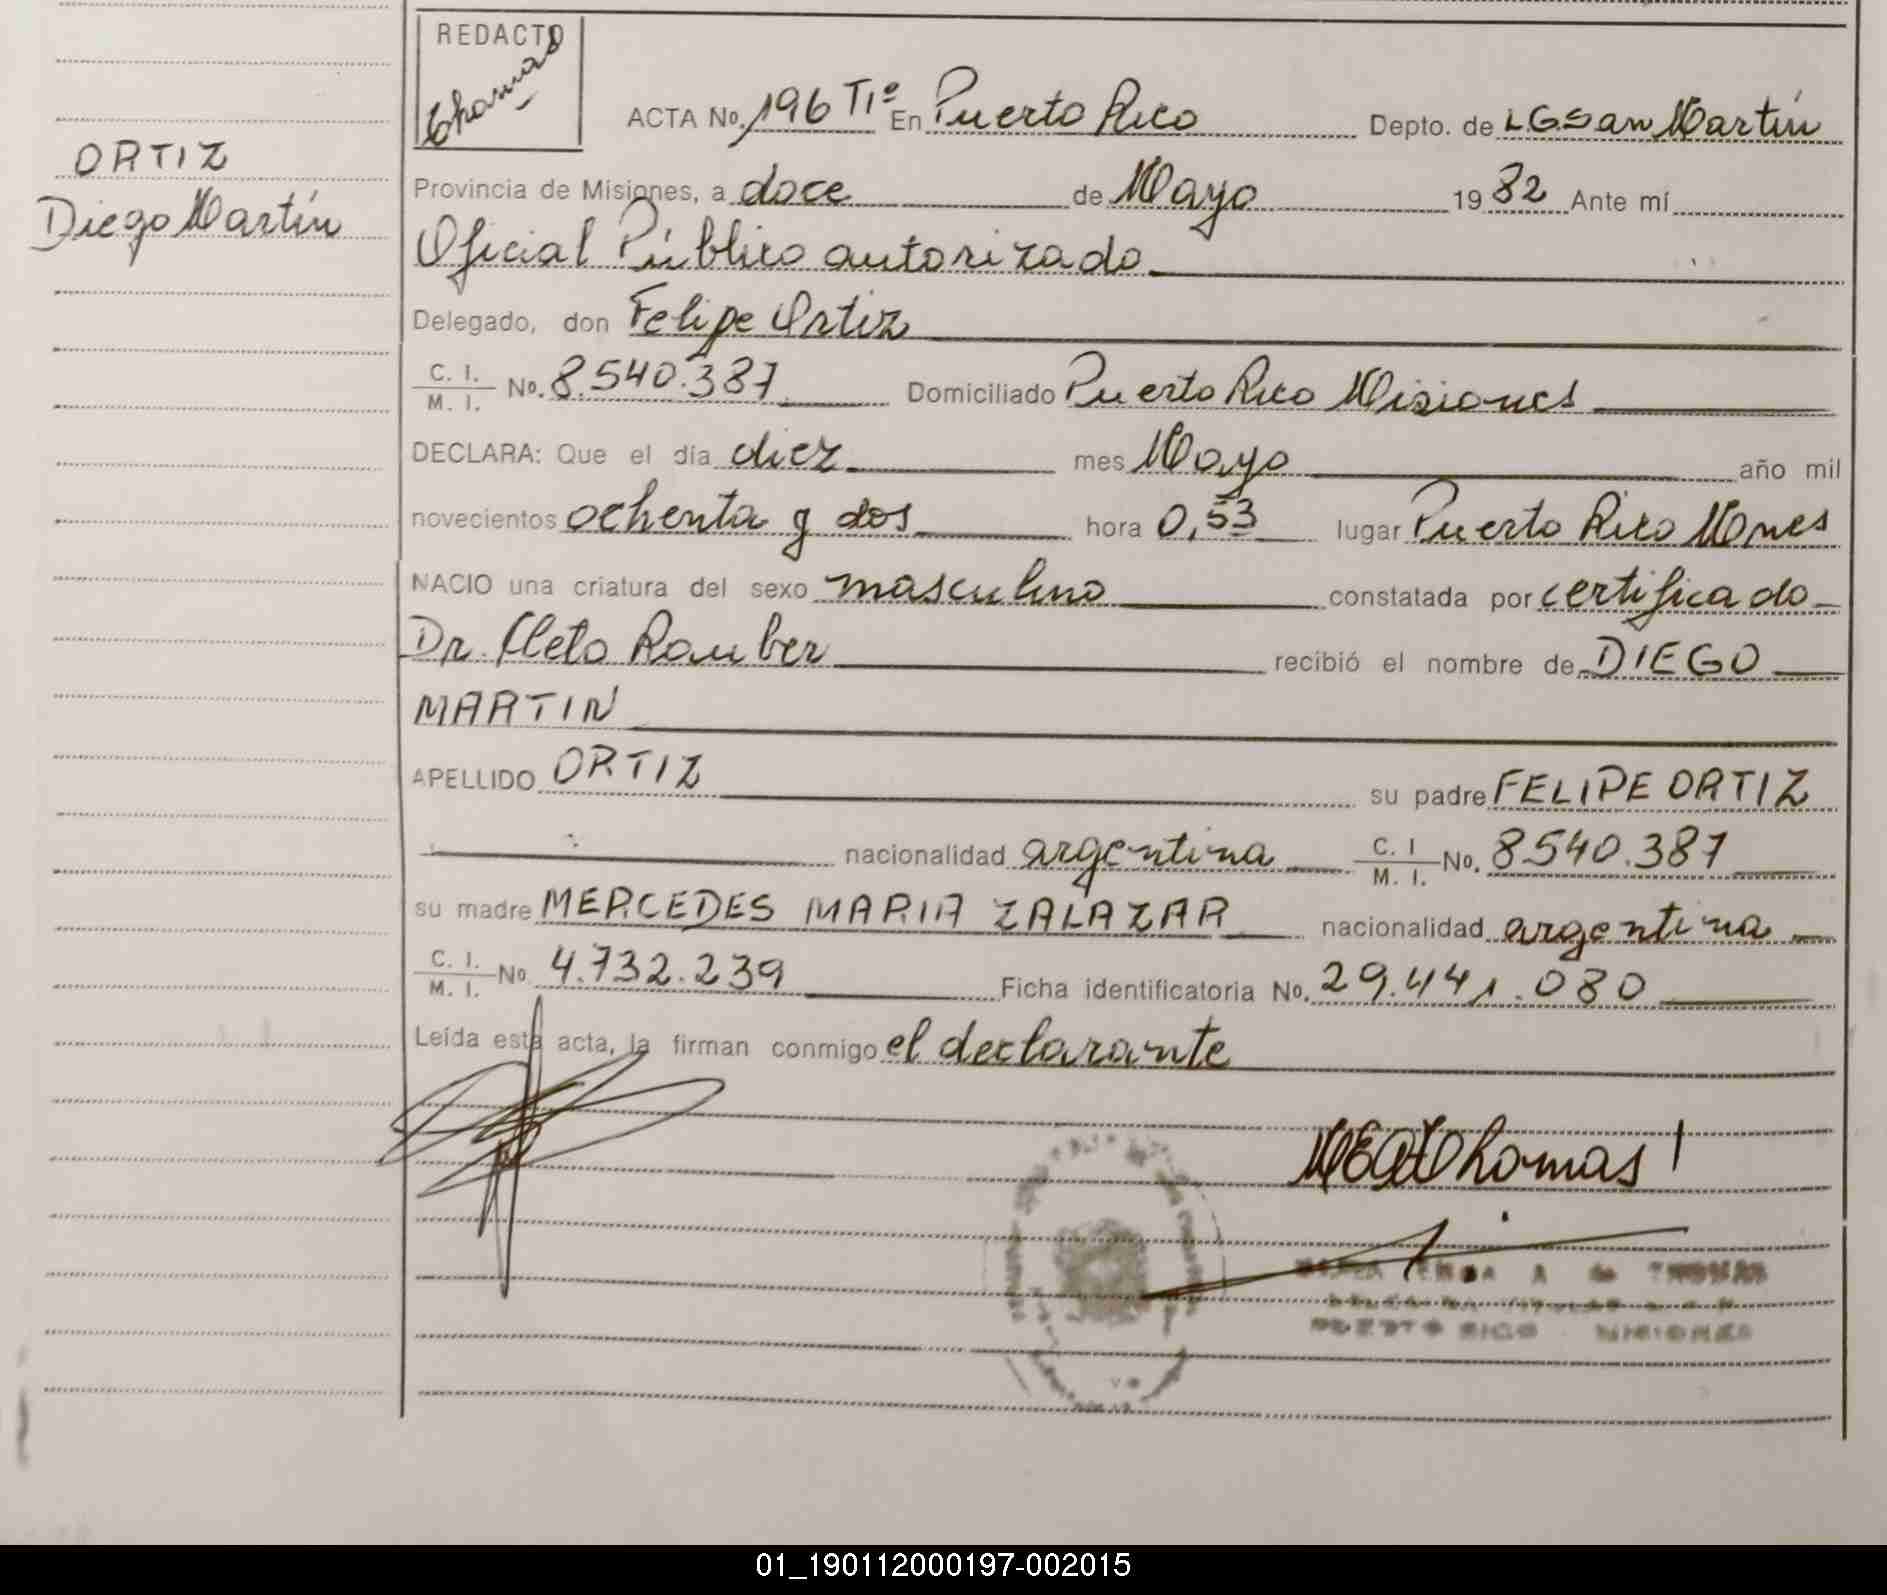 REDACTO
Thomas
ORTIZ
Diego Martín
ACTA No. 196 TIº En Puerto Rico Depto. de L.G.San Martín
Provincia de Misiones, a doce de Mayo 1982 Ante mí
Oficial Público autorizado
Delegado, don Felipe Ortiz
C. I. M. I. No. 8.540.387 Domiciliado Puerto Rico Misiones
DECLARA: Que el día diez mes Mayo año mil
novecientos ochenta y dos hora 0,53 lugar Puerto Rico Mnes
NACIO una criatura del sexo masculino constatada por certificado
Dr. Cleto Rauber recibió el nombre de DIEGO
MARTIN
APELLIDO ORTIZ su padre FELIPE ORTIZ
nacionalidad argentina C. I M. I. No. 8540.387
su madre MERCEDES MARIA ZALAZAR nacionalidad argentina
C. I. M. I. No. 4.732.239 Ficha identificatoria No. 29.441.080
Leída esta acta, la firman conmigo el declarante
Thomas
A de THOMAS
PUERTO RICO MISIONES
01_190112000197-002015